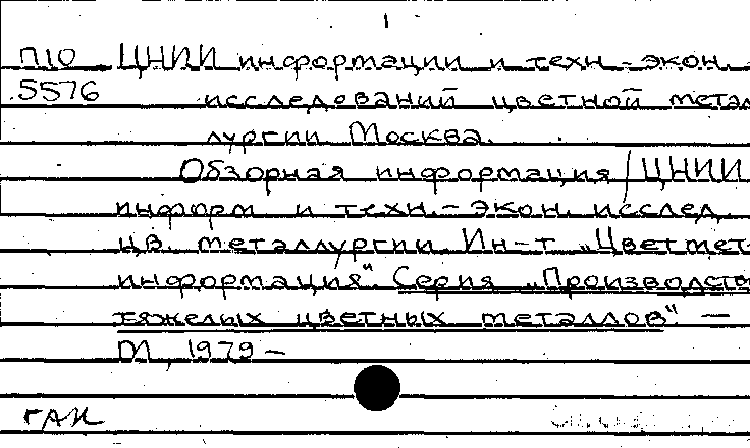 1
П10 ЦНИИ информации и техн.-экон.
5576 исследований цветной метал
лургии. Москва.
Обзорная информация / ЦНИИ
информ и техн.-экон. исслед.
цв. металлургии. Ин-т „Цветмет-
информация“. Серия „Производство
тяжелых цветных металлов“. —
М., 1979 —